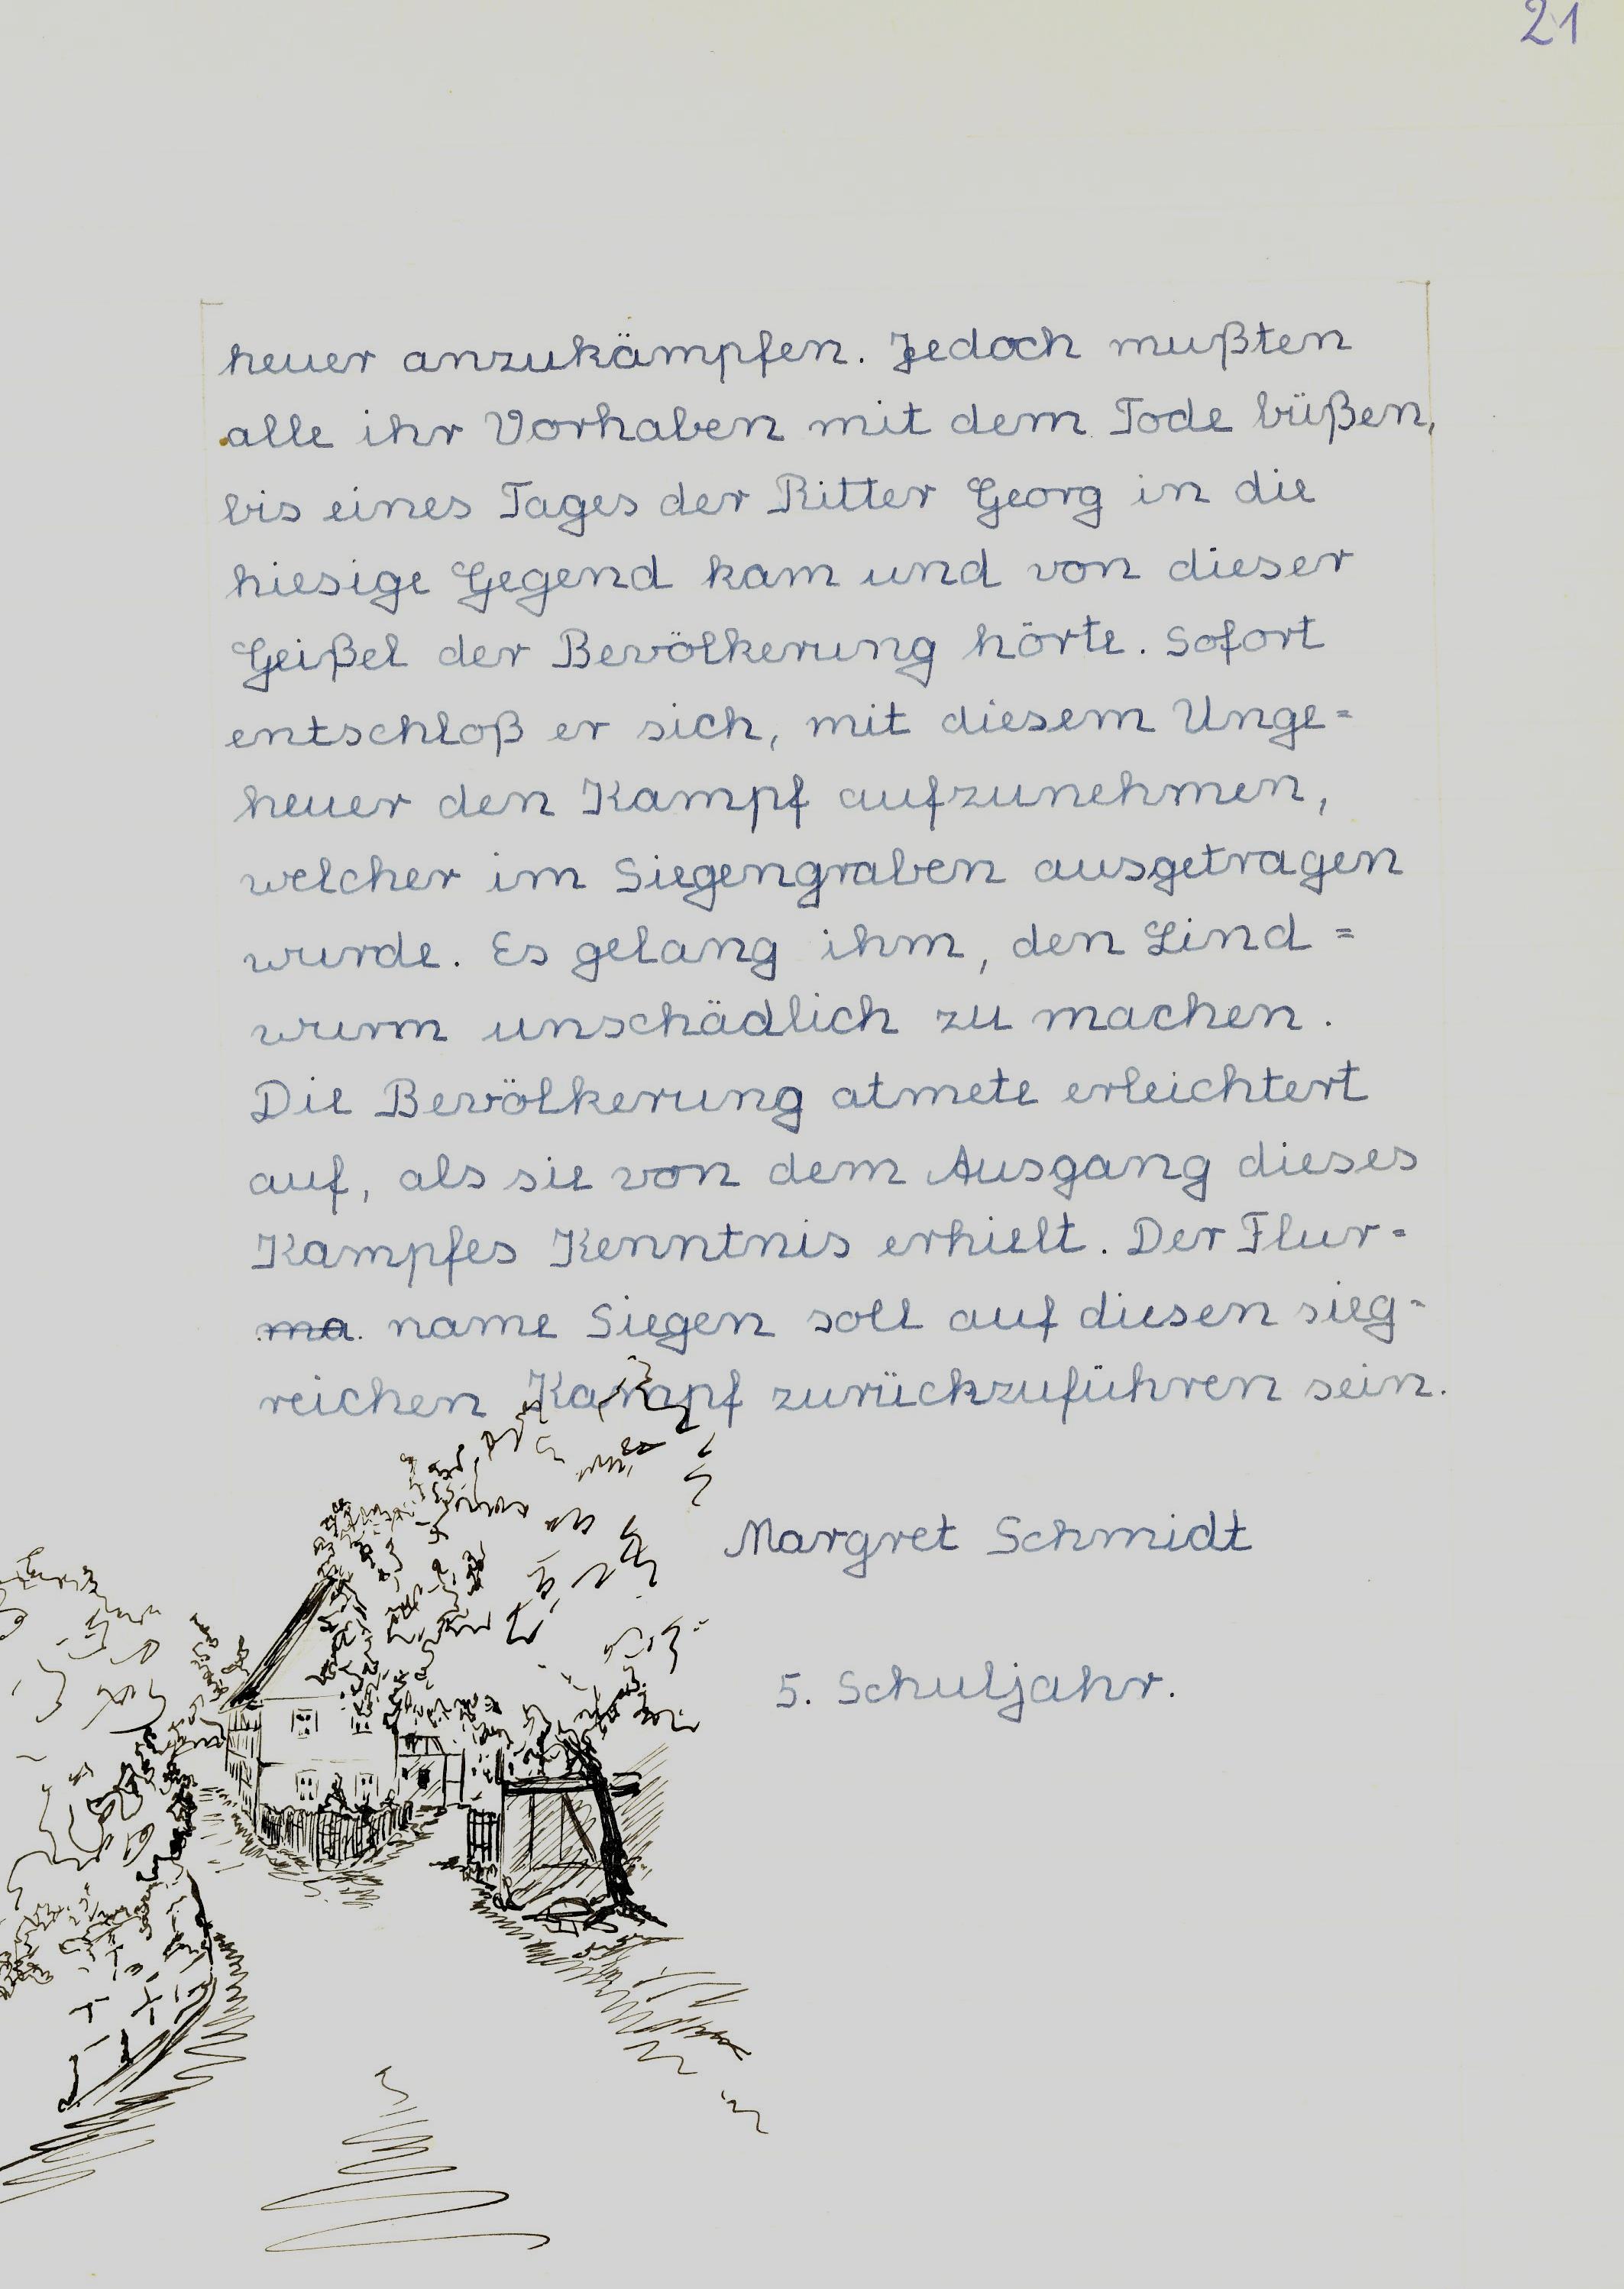 21
heuer anzukämpfen. Jedoch mußten
alle ihr Vorhaben mit dem Tode büßen,
bis eines Tages der Ritter Georg in die
hiesige Gegend kam und von dieser
Geißel der Bevölkerung hörte. Sofort
entschloß er sich, mit diesem Unge=
heuer den Kampf aufzunehmen,
welcher im Siegengraben ausgetragen
wurde. Es gelang ihm, den Lind=
wurm unschädlich zu machen.
Die Bevölkerung atmete erleichtert
auf, als sie von dem Ausgang dieses
Kampfes Kenntnis erhielt. Der Flur=
ma name Siegen soll auf diesen sieg=
reichen Kampf zurückzuführen sein.
Margret Schmidt
5. Schuljahr.